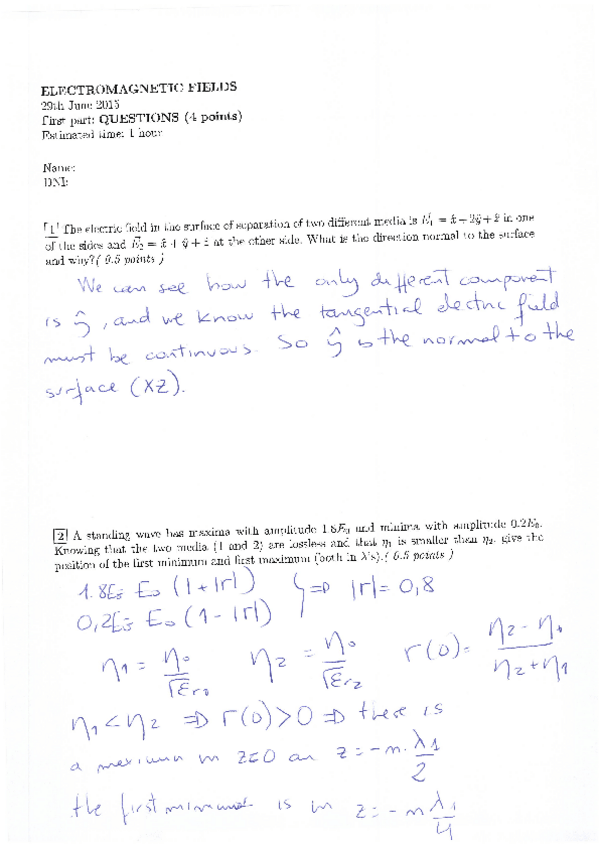 ELECTROMAGNETIC FIELDS
29th June 2015
First part: QUESTIONS (4 points)
Estimated time: 1 hour
Name:
DNI:
1 The electric field in the surface of separation of two different media is E⃗₁ = x̂ + 2ŷ + ẑ in one
of the sides and E⃗₂ = x̂ + ŷ + ẑ at the other side. What is the direction normal to the surface
and why? ( 0.5 points )
We can see how the only different component
is ŷ, and we know the tangential electric field
must be continuous. So ŷ is the normal to the
surface (XZ).
2 A standing wave has maxima with amplitude 1.8E₀ and minima with amplitude 0.2E₀.
Knowing that the two media (1 and 2) are lossless and that η₁ is smaller than η₂, give the
position of the first minimum and first maximum (both in λ's). ( 0.5 points )
1.8E₀= E₀ (1+|r|) } ⇒ |r| = 0,8
0,2E₀= E₀ (1-|r|)
η₁ = η₀/√εr₀ η₂ = η₀/√εr₂ r(0) = (η₂ - η₀)/(η₂+η₁)
η₁ < η₂ ⇒ r(0) > 0 ⇒ there is
a maximum in z=0 an z = -n·λ₁/2
the first minimum is in z = -n λ₁/4